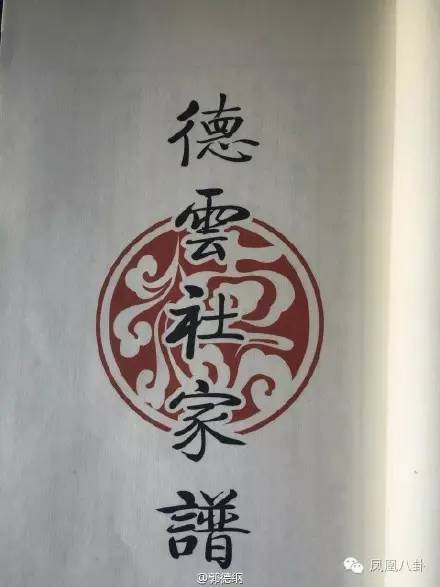 德雲社家譜
@郭德纲
凤凰八卦